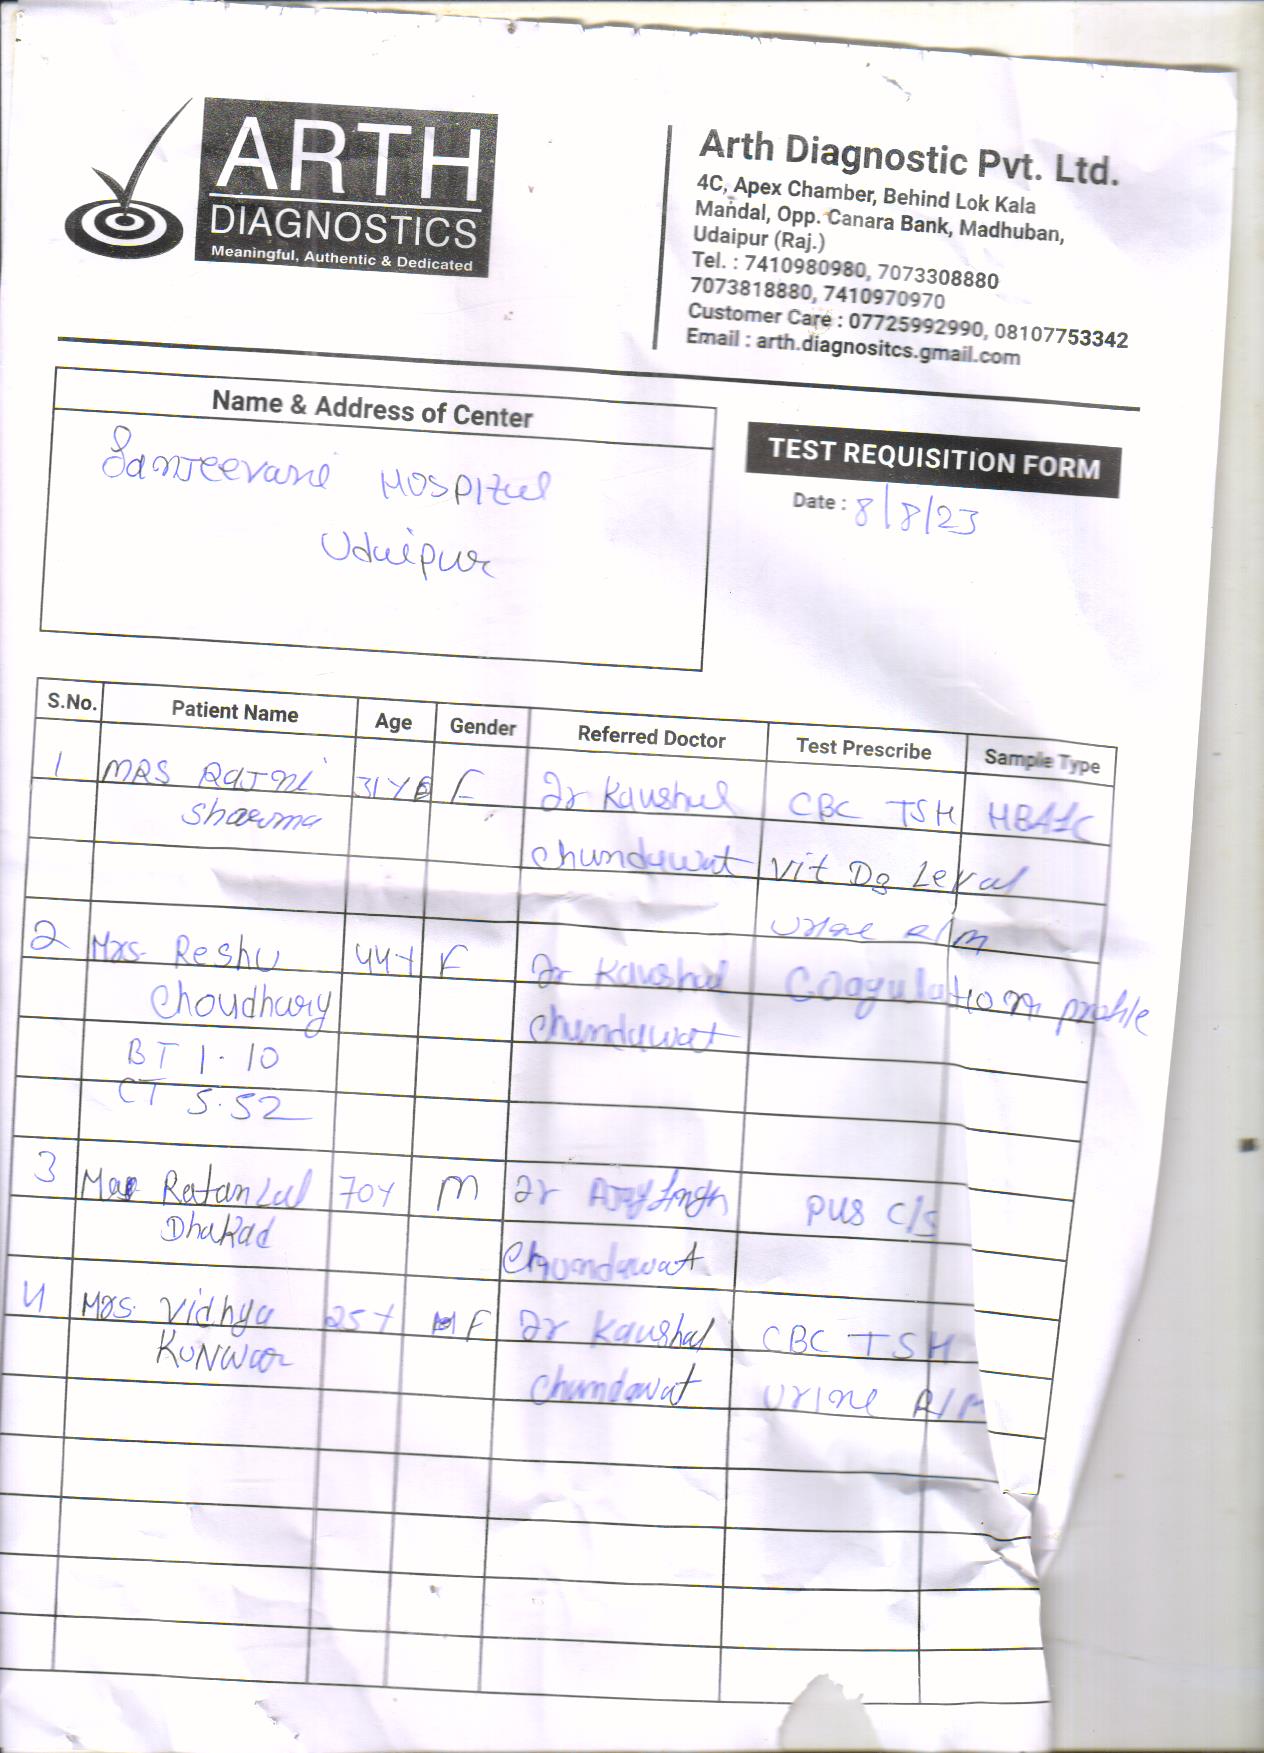 ARTH
DIAGNOSTICS
Meaningful, Authentic & Dedicated
Arth Diagnostic Pvt. Ltd.
4C, Apex Chamber, Behind Lok Kala
Mandal, Opp. Canara Bank, Madhuban,
Udaipur (Raj.)
Tel. : 7410980980, 7073308880
7073818880, 7410970970
Customer Care : 07725992990, 08107753342
Email : arth.diagnositcs.gmail.com
Name & Address of Center
Sanjeevani Hospital
Udaipur
TEST REQUISITION FORM
Date : 8/8/23
S.No. Patient Name Age Gender Referred Doctor Test Prescribe Sample Type
1 MRS Rajni 31Y F Dr Kaushal CBC TSH HBA1C
Sharma Chundawat Vit D3 Level
Urine R/M
2 Mrs. Reshu 44Y F Dr Kaushal Coagulation profile
Choudhary Chundawat
BT 1.10
CT 5.52
3 Ratan Lal 70Y M Dr Ajay Singh PUS C/S
Dhakad Chundawat
4 Mrs. Vidhya 25Y F Dr Kaushal CBC TSH
Kunwar Chundawat Urine R/M